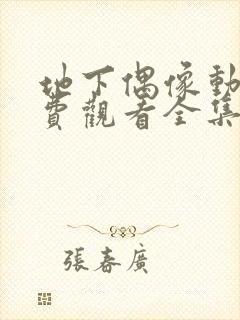 地下偶像動
費觀看全集
張春廣